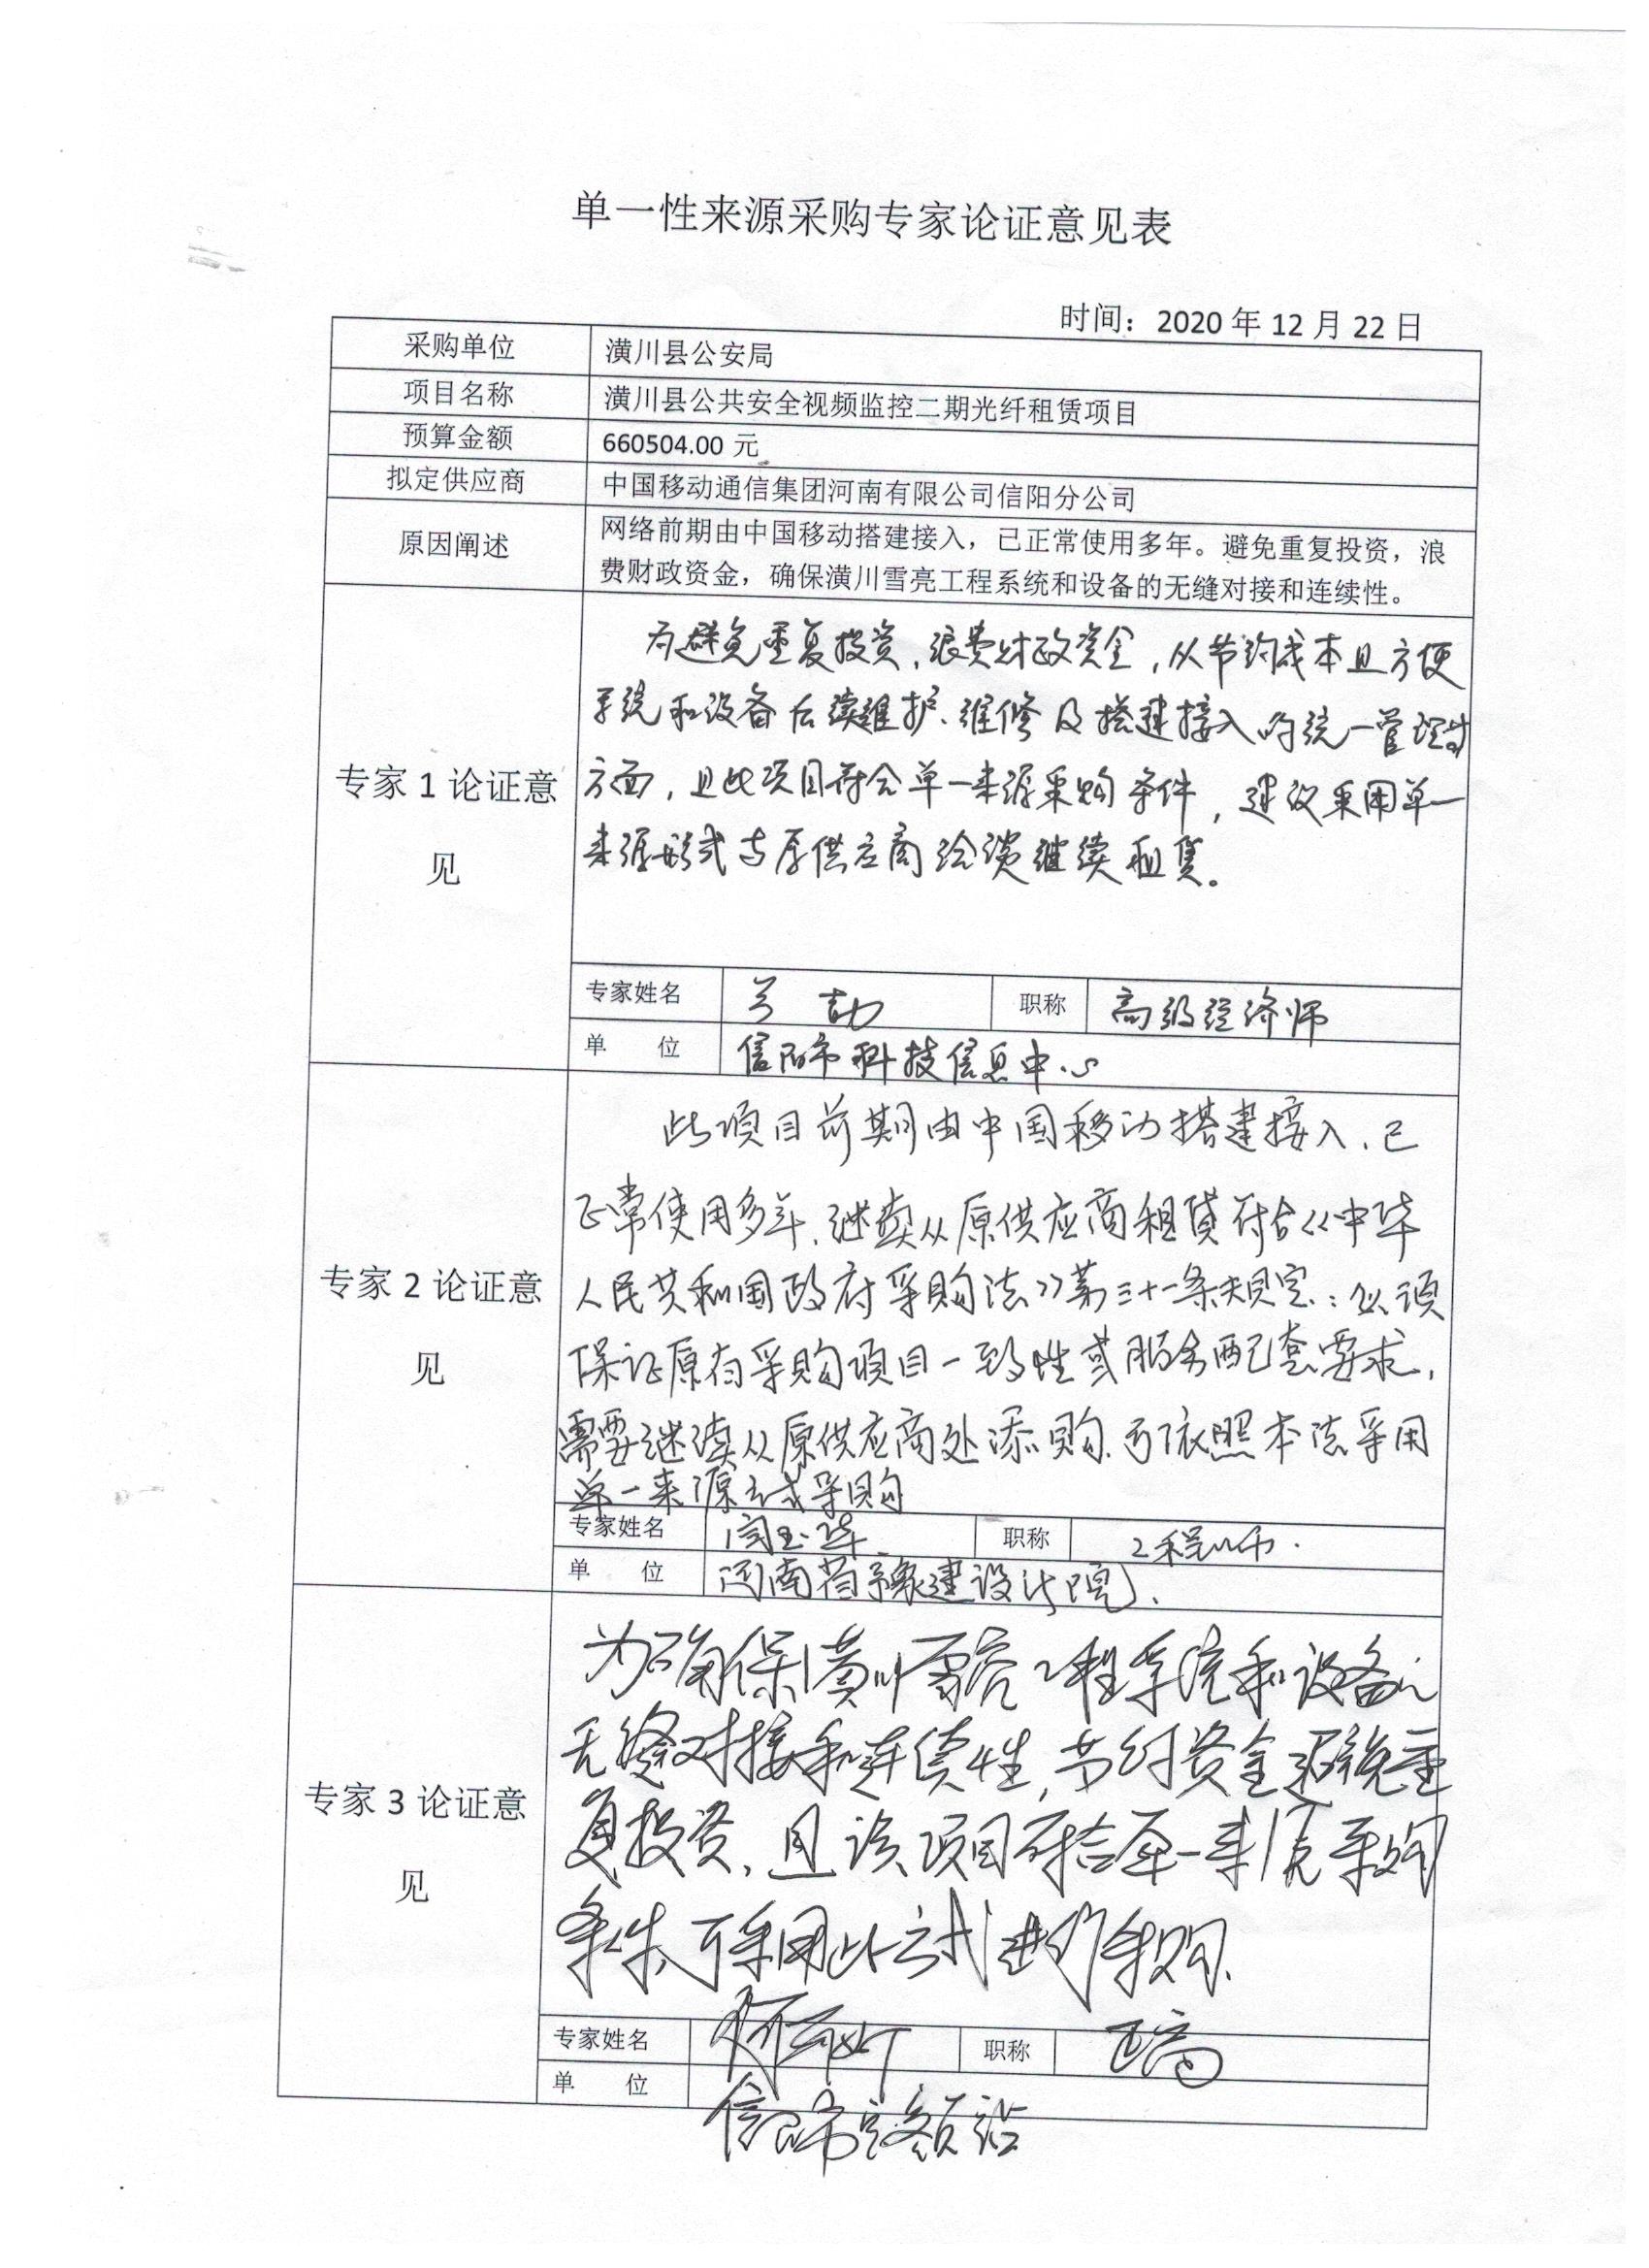 单一性来源采购专家论证意见表
时间：2020 年 12 月 22 日
采购单位
潢川县公安局
项目名称
潢川县公共安全视频监控二期光纤租赁项目
预算金额
660504.00 元
拟定供应商
中国移动通信集团河南有限公司信阳分公司
原因阐述
网络前期由中国移动搭建接入，已正常使用多年。避免重复投资，浪
费财政资金，确保潢川雪亮工程系统和设备的无缝对接和连续性。
专家 1 论证意
见
为避免重复投资，浪费财政资金，从节约成本且方便
系统和设备后续维护、维修及搭建接入的统一管理等
方面，且此项目符合单一来源采购条件，建议采用单一
来源形式与原供应商洽谈继续租赁。
专家姓名
职称
高级经济师
单 位
信阳市科技信息中心
专家 2 论证意
见
此项目前期由中国移动搭建接入，已
正常使用多年，继续从原供应商租赁符合《中华
人民共和国政府采购法》第三十一条规定：必须
保证原有采购项目一致性或服务配套要求，
需要继续从原供应商处添购，可依照本法采用
单一来源方式采购
专家姓名
闵玉华
职称
工程师
单 位
河南省豫建设计院
专家 3 论证意
见
为确保潢川雪亮工程系统和设备的
无缝对接和连续性，节约资金避免重
复投资，且该项目符合单一来源采购
条件，可采用此方式进行采购。
专家姓名
职称
单 位
信阳市定额站